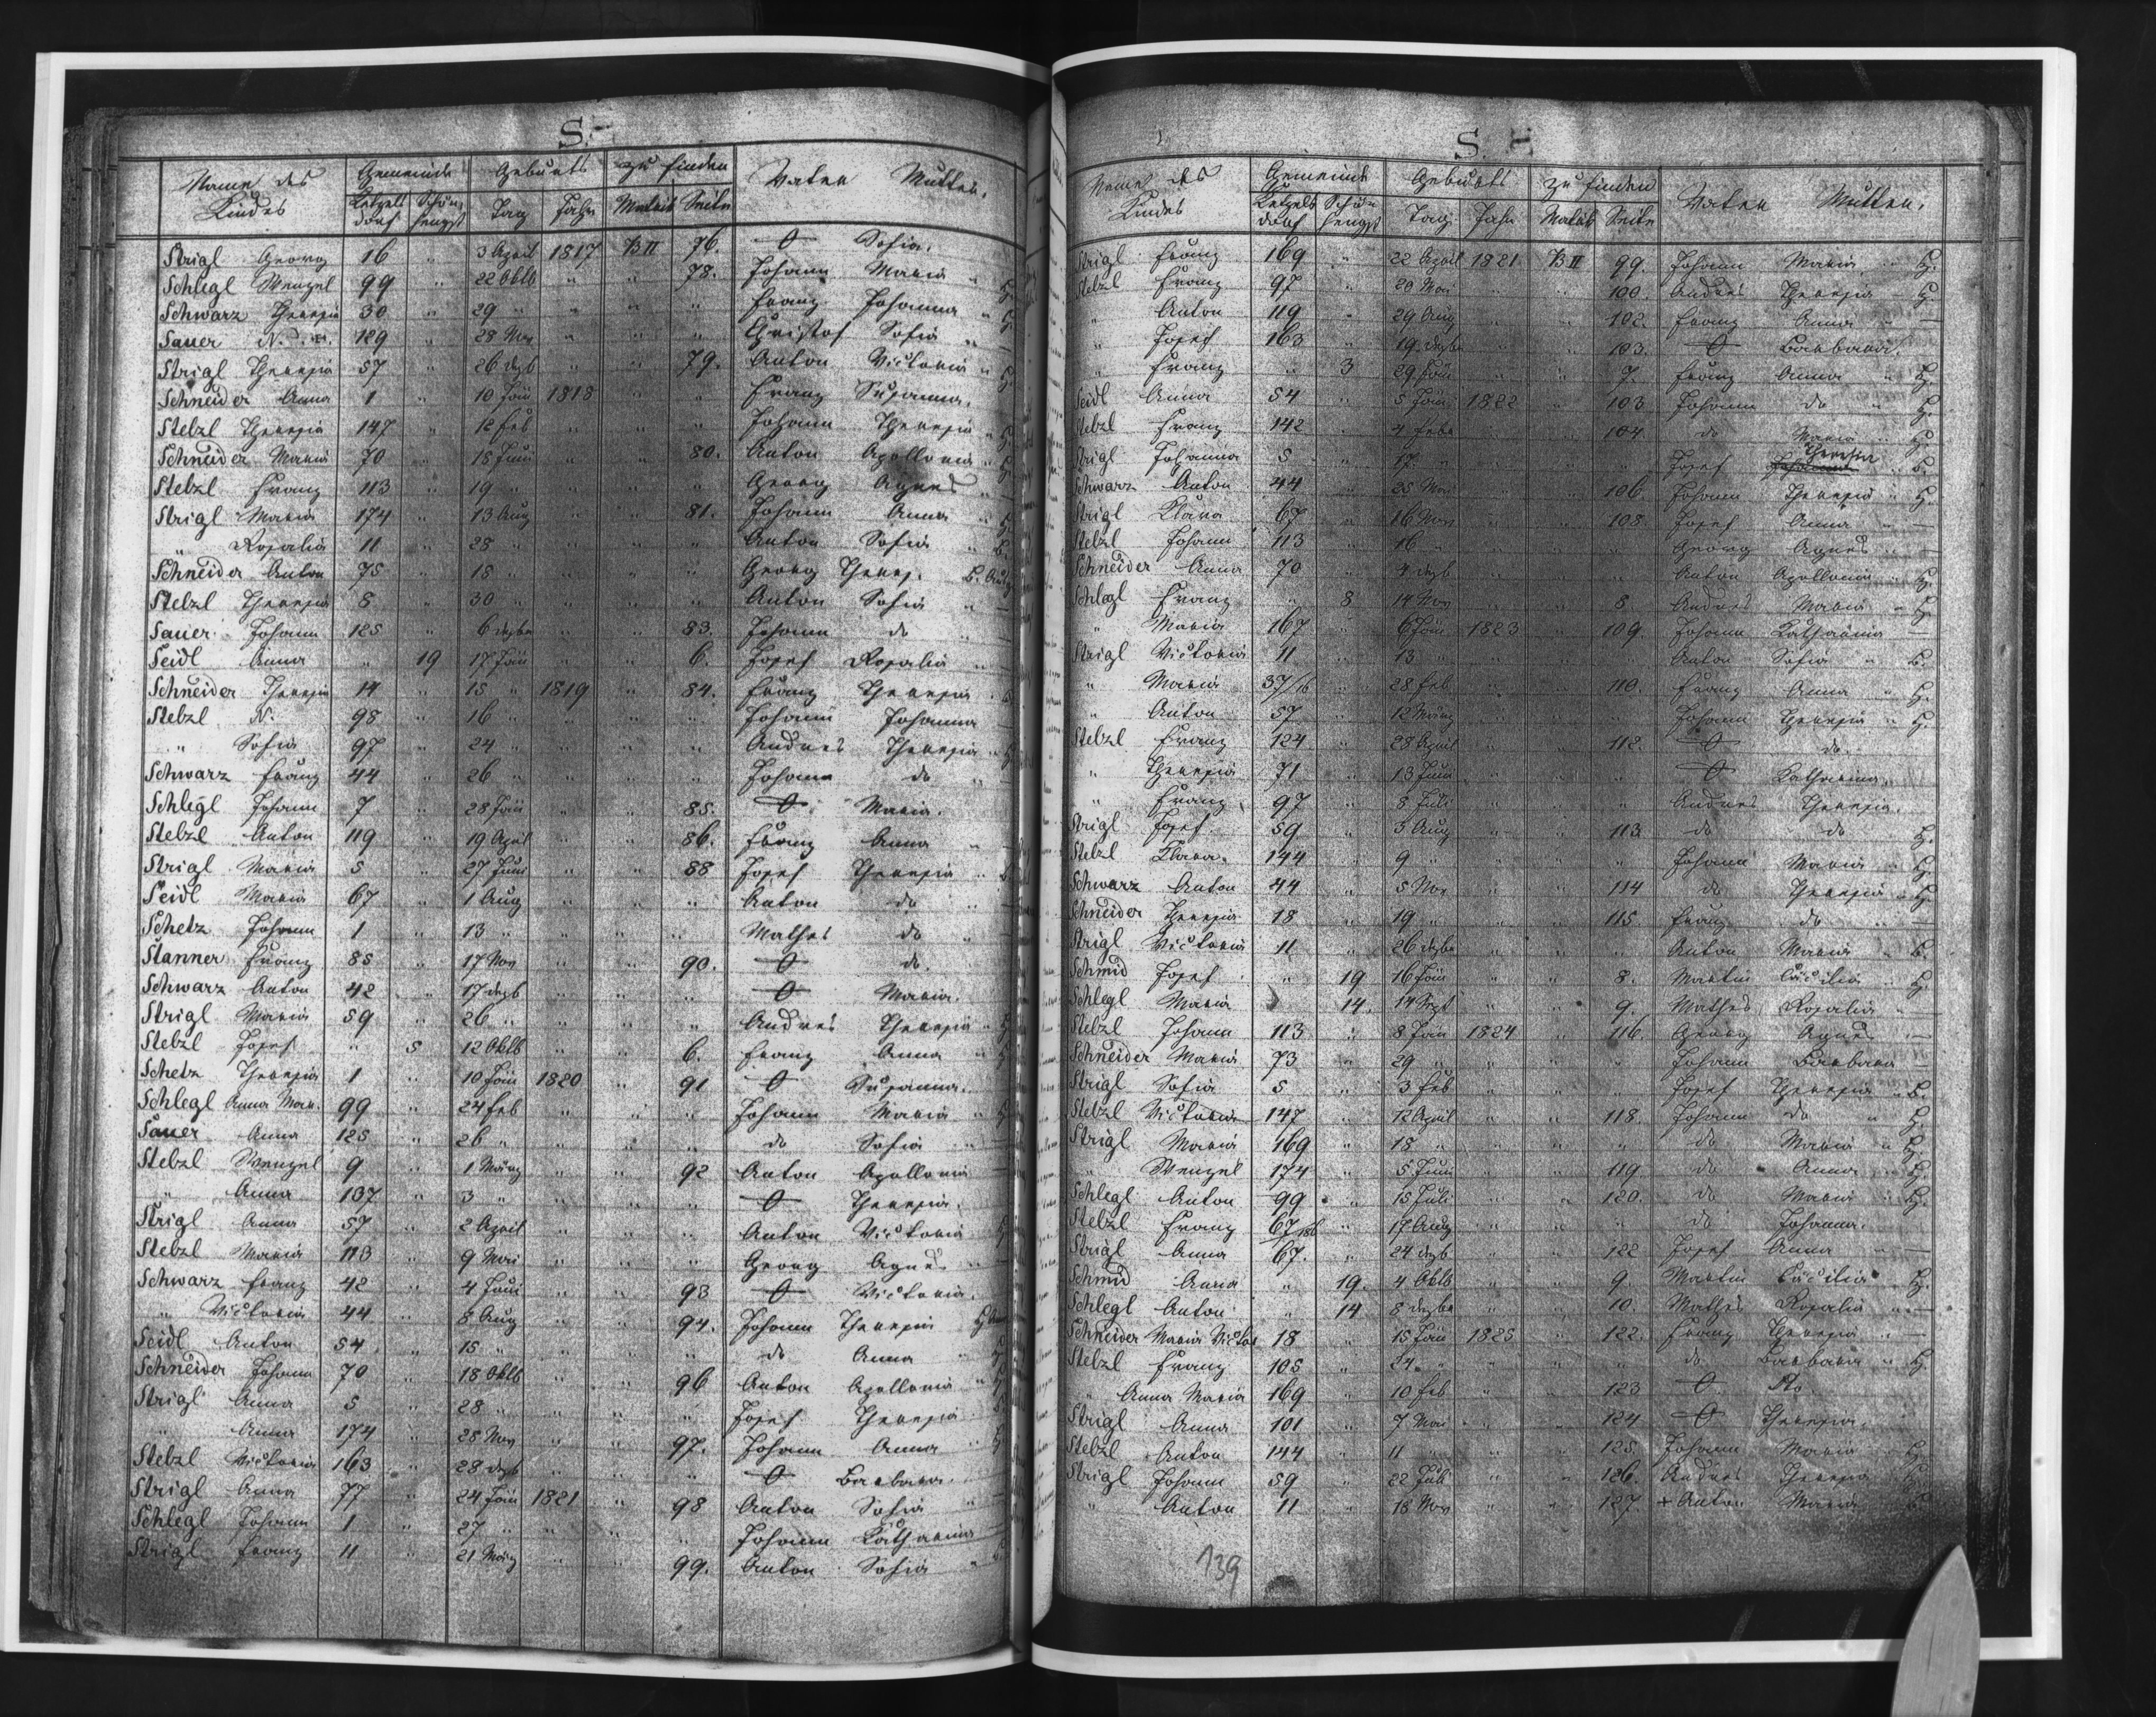 S.
Name des Kindes Gemeinde Geburts zu finden Vater Mutter.
Ketzelsdorf Schönhengst Tag Jahr Matrik Seite
Strigl Georg 16 " 3 April 1817 B II 76. O Sofia.
Schlegl Wenzel 99 " 22 Oktb " " 78. Johann Maria "
Schwarz Theresia 30 " 29 " " " " Franz Johanna "
Sauer N. 129 " 28 Nov " " " Christof Sofia "
Strigl Theresia 57 " 26 dezb " " 79. Anton Victoria "
Schneider Anna 1 " 10 Jän 1818 " " Franz Susanna.
Stebzl Theresia 147 " 12 feb " " " Johann Theresia "
Schneider Maria 70 " 18 Juni " " 80. Anton Apollonia "
Stebzl Franz 113 " 19 " " " " Georg Agnes "
Strigl Maria 174 " 13 Aug " " 81. Johann Anna "
" Rosalia 11 " 28 " " " " Anton Sofia "
Schneider Anton 75 " 18 " " " " Georg Theres.
Stebzl Theresia 8 " 30 " " " " Anton Sofia "
Sauer Johann 125 " 6 dezbr " " 83. Johann do "
Seidl Anna " 19 17 Jän " " 6. Josef Rosalia "
Schneider Theresia 14 " 15 " 1819 " 84. Franz Theresia "
Stebzl N. 98 " 16 " " " " Johann Johanna "
" Sofia 97 " 24 " " " " Andres Theresia "
Schwarz Franz 44 " 26 " " " " Johann do "
Schlegl Johann 7 " 28 Jän " " 85. O Maria.
Stebzl Anton 119 " 19 April " " 86. Franz Anna "
Strigl Maria 5 " 27 Juni " " 88 Josef Theresia "
Seidl Maria 67 " 1 Aug " " " Anton do "
Schetz Johann 1 " 13 " " " " Mathes do "
Stanner Franz 85 " 17 Nov " " 90. O do.
Schwarz Anton 42 " 17 dezb " " " O Maria.
Strigl Maria 59 " 26 " " " " Andres Theresia "
Stebzl Josef " 5 12 Oktb " " 6. Franz Anna "
Schetz Theresia 1 " 10 Jän 1820 " 91 O Susanna.
Schlegl Anna Mar. 99 " 24 feb " " " Johann Maria "
Sauer Anna 125 " 26 " " " " do Sofia "
Stebzl Wenzel 9 " 1 März " " 92 Anton Apollonia
" Anna 137 " 3 " " " " O Theresia.
Strigl Anna 57 " 2 April " " " Anton Victoria
Stebzl Maria 113 " 9 Mai " " " Georg Agnes "
Schwarz Franz 42 " 4 Juni " " 93 O Victoria.
" Victoria 44 " 8 Aug " " 94. Johann Theresia
Seidl Anton 54 " 15 " " " " do Anna "
Schneider Johann 70 " 18 Oktb " " 96 Anton Apollonia "
Strigl Anna 5 " 28 " " " " Josef Theresia "
" Anna 174 " 28 Nov " " 97. Johann Anna "
Stebzl Victoria 163 " 28 dezb " " " O Barbara.
Strigl Anna 77 " 24 Jän 1821 " 98 Anton Sofia "
Schlegl Johann 1 " 27 " " " " Johann Katharina
Strigl Franz 11 " 21 März " " 99. Anton Sofia "
S.
Name des Kindes Gemeinde Geburts zu finden Vater Mutter.
Ketzelsdorf Schönhengst Tag Jahr Matrik Seite
Strigl Franz 169 " 22 April 1821 B II 99. Johann Maria " H.
Stebzl Franz 97 " 20 Mai " " 100. Andres Theresia " H.
" Anton 119 " 29 Aug " " 102. Franz Anna " —
" Josef 163 " 19 dezbr " " 103. O Barbara.
" Franz " 3 29 Jän " " 7. Franz Anna " H.
Seidl Anna 54 " 5 Jän 1822 " 103 Johann do " H.
Stebzl Franz 142 " 4 febr " " 104 do Maria " H.
Strigl Johanna 5 " 17 " " " " Josef Theresia " B.
Schwarz Anton 44 " 25 Mai " " 106 Johann Theresia " H.
Strigl Klara 67 " 16 Nov " " 108 Josef Anna " —
Stebzl Johann 113 " 16 " " " " Georg Agnes " —
Schneider Anna 70 " 4 dezb " " " Anton Apollonia " H.
Schlegl Franz " 8 14 Nov " " 8 Andres Maria " H.
" Maria 167 " 6 Jän 1823 " 109. Johann Katharina —
Strigl Victoria 11 " 13 " " " " Anton Sofia " B.
" Maria 37/16 " 28 feb " " 110. Franz Anna " H.
" Anton 57 " 12 März " " " Johann Theresia " H.
Stebzl Franz 124 " 28 April " " 112. O do
" Theresia 71 " 13 Juni " " " O Katharina.
" Franz 97 " 8 Juli " " " Andres Theresia.
Strigl Josef 59 " 3 Aug " " 113 do do H.
Stebzl Klara. 144 " 9 " " " " Johann Maria " H.
Schwarz Anton 44 " 5 Nov " " 114 do Theresia " H.
Schneider Theresia 18 " 19 " " " 115 Franz do " —
Strigl Victoria 11 " 26 dezbr " " " Anton Maria " B.
Schmid Josef " 19 16 Jän " " 8. Martin Cäcilia " H.
Schlegl Maria 14. 14 Sept " " 9. Mathes Rosalia " —
Stebzl Johann 113 " 8 Jän 1824 " 116. Georg Agnes —
Schneider Maria 73 " 29 " " " " Johann Barbara —
Strigl Sofia 5 " 3 feb " " " Josef Theresia " B.
Stebzl Victoria 147 " 12 April " " 118. Johann do " H.
Strigl Maria 169 " 18 " " " " do Maria " H.
" Wenzel 174 " 5 Juni " " 119 do Anna " H.
Schlegl Anton 99 " 15 Juli " " 120. do Maria " H.
Stebzl Franz 67/186 " 17 Aug " " " do Johanna.
Strigl Anna 67. " 24 dezb " " 122 Josef Anna " —
Schmid Anna " 19. 4 Oktb " " 9. Martin Cäcilia " H.
Schlegl Anton " 14 8 dezbr " " 10. Mathes Rosalia " —
Schneider Maria Victor 18 " 15 Jän 1825 " 122. Franz Theresia " —
Stebzl Franz 105 " 24 " " " " do Barbara " H.
" Anna Maria 169 " 10 feb " " 123 O do.
Strigl Anna 101 " 7 Mai " " 124 O Theresia.
Stebzl Anton 144 " 11 " " " 125. Johann Maria " H.
Strigl Johann 59 " 22 Juli " " 126. Andres Theresia H.
" Anton 11 " 18 Nov " " 127. + Anton Maria " B.
139